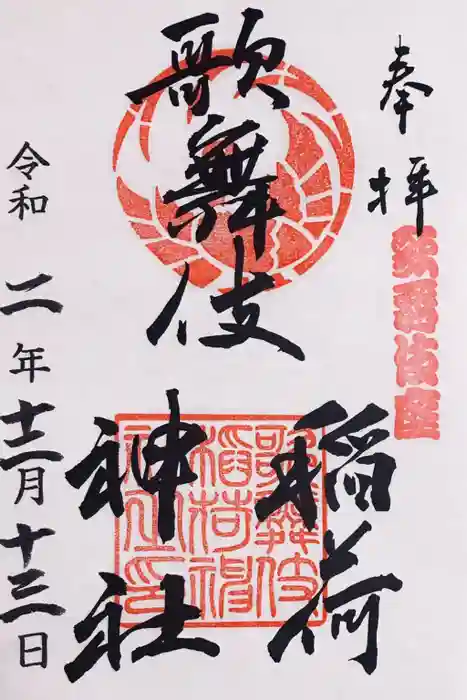 奉拝
歌舞伎座
歌舞伎
稲荷
神社
令和二年十二月十三日